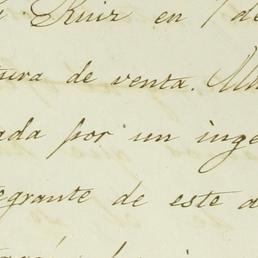 Ruiz en 7 de
tura de venta.
ada por un inge
egrante de este d